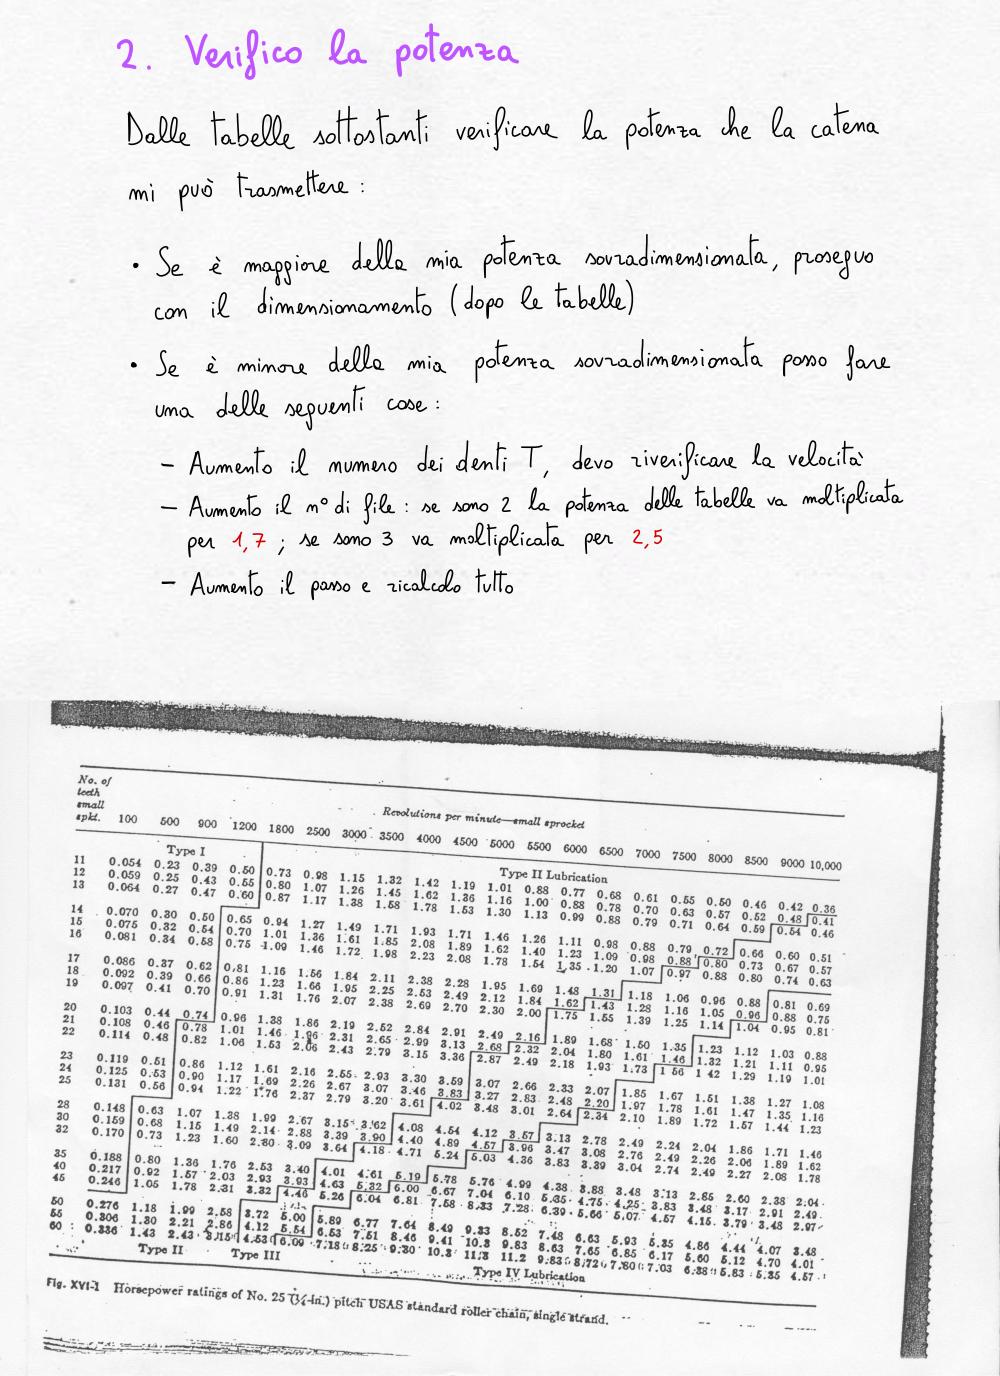 2. Verifico la potenza
Dalle tabelle sottostanti verificare la potenza che la catena
mi può trasmettere :
• Se è maggiore della mia potenza sovradimensionata, proseguo
con il dimensionamento (dopo le tabelle)
• Se è minore della mia potenza sovradimensionata posso fare
una delle seguenti cose :
– Aumento il numero dei denti T, devo riverificare la velocità
– Aumento il n° di file : se sono 2 la potenza delle tabelle va moltiplicata
per 1,7 ; se sono 3 va moltiplicata per 2,5
– Aumento il passo e ricalcolo tutto
No. of
teeth
small
spkt.
Revolutions per minute—small sprocket
100 500 900 1200 1800 2500 3000 3500 4000 4500 5000 5500 6000 6500 7000 7500 8000 8500 9000 10,000
Type I
Type II Lubrication
11 0.054 0.23 0.39 0.50 0.73 0.98 1.15 1.32 1.42 1.19 1.01 0.88 0.77 0.68 0.61 0.55 0.50 0.46 0.42 0.36
12 0.059 0.25 0.43 0.55 0.80 1.07 1.26 1.45 1.62 1.36 1.16 1.00 0.88 0.78 0.70 0.63 0.57 0.52 0.48 0.41
13 0.064 0.27 0.47 0.60 0.87 1.17 1.38 1.58 1.78 1.53 1.30 1.13 0.99 0.88 0.79 0.71 0.64 0.59 0.54 0.46
14 0.070 0.30 0.50 0.65 0.94 1.27 1.49 1.71 1.93 1.71 1.46 1.26 1.11 0.98 0.88 0.79 0.72 0.66 0.60 0.51
15 0.075 0.32 0.54 0.70 1.01 1.36 1.61 1.85 2.08 1.89 1.62 1.40 1.23 1.09 0.98 0.88 0.80 0.73 0.67 0.57
16 0.081 0.34 0.58 0.75 1.09 1.46 1.72 1.98 2.23 2.08 1.78 1.54 1.35 1.20 1.07 0.97 0.88 0.80 0.74 0.63
17 0.086 0.37 0.62 0.81 1.16 1.56 1.84 2.11 2.38 2.28 1.95 1.69 1.48 1.31 1.18 1.06 0.96 0.88 0.81 0.69
18 0.092 0.39 0.66 0.86 1.23 1.66 1.95 2.25 2.53 2.49 2.12 1.84 1.62 1.43 1.28 1.16 1.05 0.96 0.88 0.75
19 0.097 0.41 0.70 0.91 1.31 1.76 2.07 2.38 2.69 2.70 2.30 2.00 1.75 1.55 1.39 1.25 1.14 1.04 0.95 0.81
20 0.103 0.44 0.74 0.96 1.38 1.86 2.19 2.52 2.84 2.91 2.49 2.16 1.89 1.68 1.50 1.35 1.23 1.12 1.03 0.88
21 0.108 0.46 0.78 1.01 1.46 1.96 2.31 2.65 2.99 3.13 2.68 2.32 2.04 1.80 1.61 1.46 1.32 1.21 1.11 0.95
22 0.114 0.48 0.82 1.06 1.53 2.06 2.43 2.79 3.15 3.36 2.87 2.49 2.18 1.93 1.73 1.56 1.42 1.29 1.19 1.01
23 0.119 0.51 0.86 1.12 1.61 2.16 2.55 2.93 3.30 3.59 3.07 2.66 2.33 2.07 1.85 1.67 1.51 1.38 1.27 1.08
24 0.125 0.53 0.90 1.17 1.69 2.26 2.67 3.07 3.46 3.83 3.27 2.83 2.48 2.20 1.97 1.78 1.61 1.47 1.35 1.16
25 0.131 0.56 0.94 1.22 1.76 2.37 2.79 3.20 3.61 4.02 3.48 3.01 2.64 2.34 2.10 1.89 1.72 1.57 1.44 1.23
28 0.148 0.63 1.07 1.38 1.99 2.67 3.15 3.62 4.08 4.54 4.12 3.57 3.13 2.78 2.49 2.24 2.04 1.86 1.71 1.46
30 0.159 0.68 1.15 1.49 2.14 2.88 3.39 3.90 4.40 4.89 4.57 3.96 3.47 3.08 2.76 2.49 2.26 2.06 1.89 1.62
32 0.170 0.73 1.23 1.60 2.30 3.09 3.64 4.18 4.71 5.24 5.03 4.36 3.83 3.39 3.04 2.74 2.49 2.27 2.08 1.78
35 0.188 0.80 1.36 1.76 2.53 3.40 4.01 4.61 5.19 5.78 5.76 4.99 4.38 3.88 3.48 3.13 2.85 2.60 2.38 2.04
40 0.217 0.92 1.57 2.03 2.93 3.93 4.63 5.32 6.00 6.67 7.04 6.10 5.35 4.75 4.25 3.83 3.48 3.17 2.91 2.49
45 0.246 1.05 1.78 2.31 3.32 4.46 5.26 6.04 6.81 7.58 8.33 7.28 6.39 5.66 5.07 4.57 4.15 3.79 3.48 2.97
50 0.276 1.18 1.99 2.58 3.72 5.00 5.89 6.77 7.64 8.49 9.33 8.52 7.48 6.63 5.93 5.35 4.86 4.44 4.07 3.48
55 0.306 1.30 2.21 2.86 4.12 5.54 6.53 7.51 8.46 9.41 10.3 9.83 8.63 7.65 6.85 6.17 5.60 5.12 4.70 4.01
60 0.336 1.43 2.43 3.15 4.53 6.09 7.18 8.25 9.30 10.3 11.3 11.2 9.83 8.72 7.80 7.03 6.38 5.83 5.35 4.57
Type II Type III Type IV Lubrication
Fig. XVI-1 Horsepower ratings of No. 25 (¼-in.) pitch USAS standard roller chain, single strand.